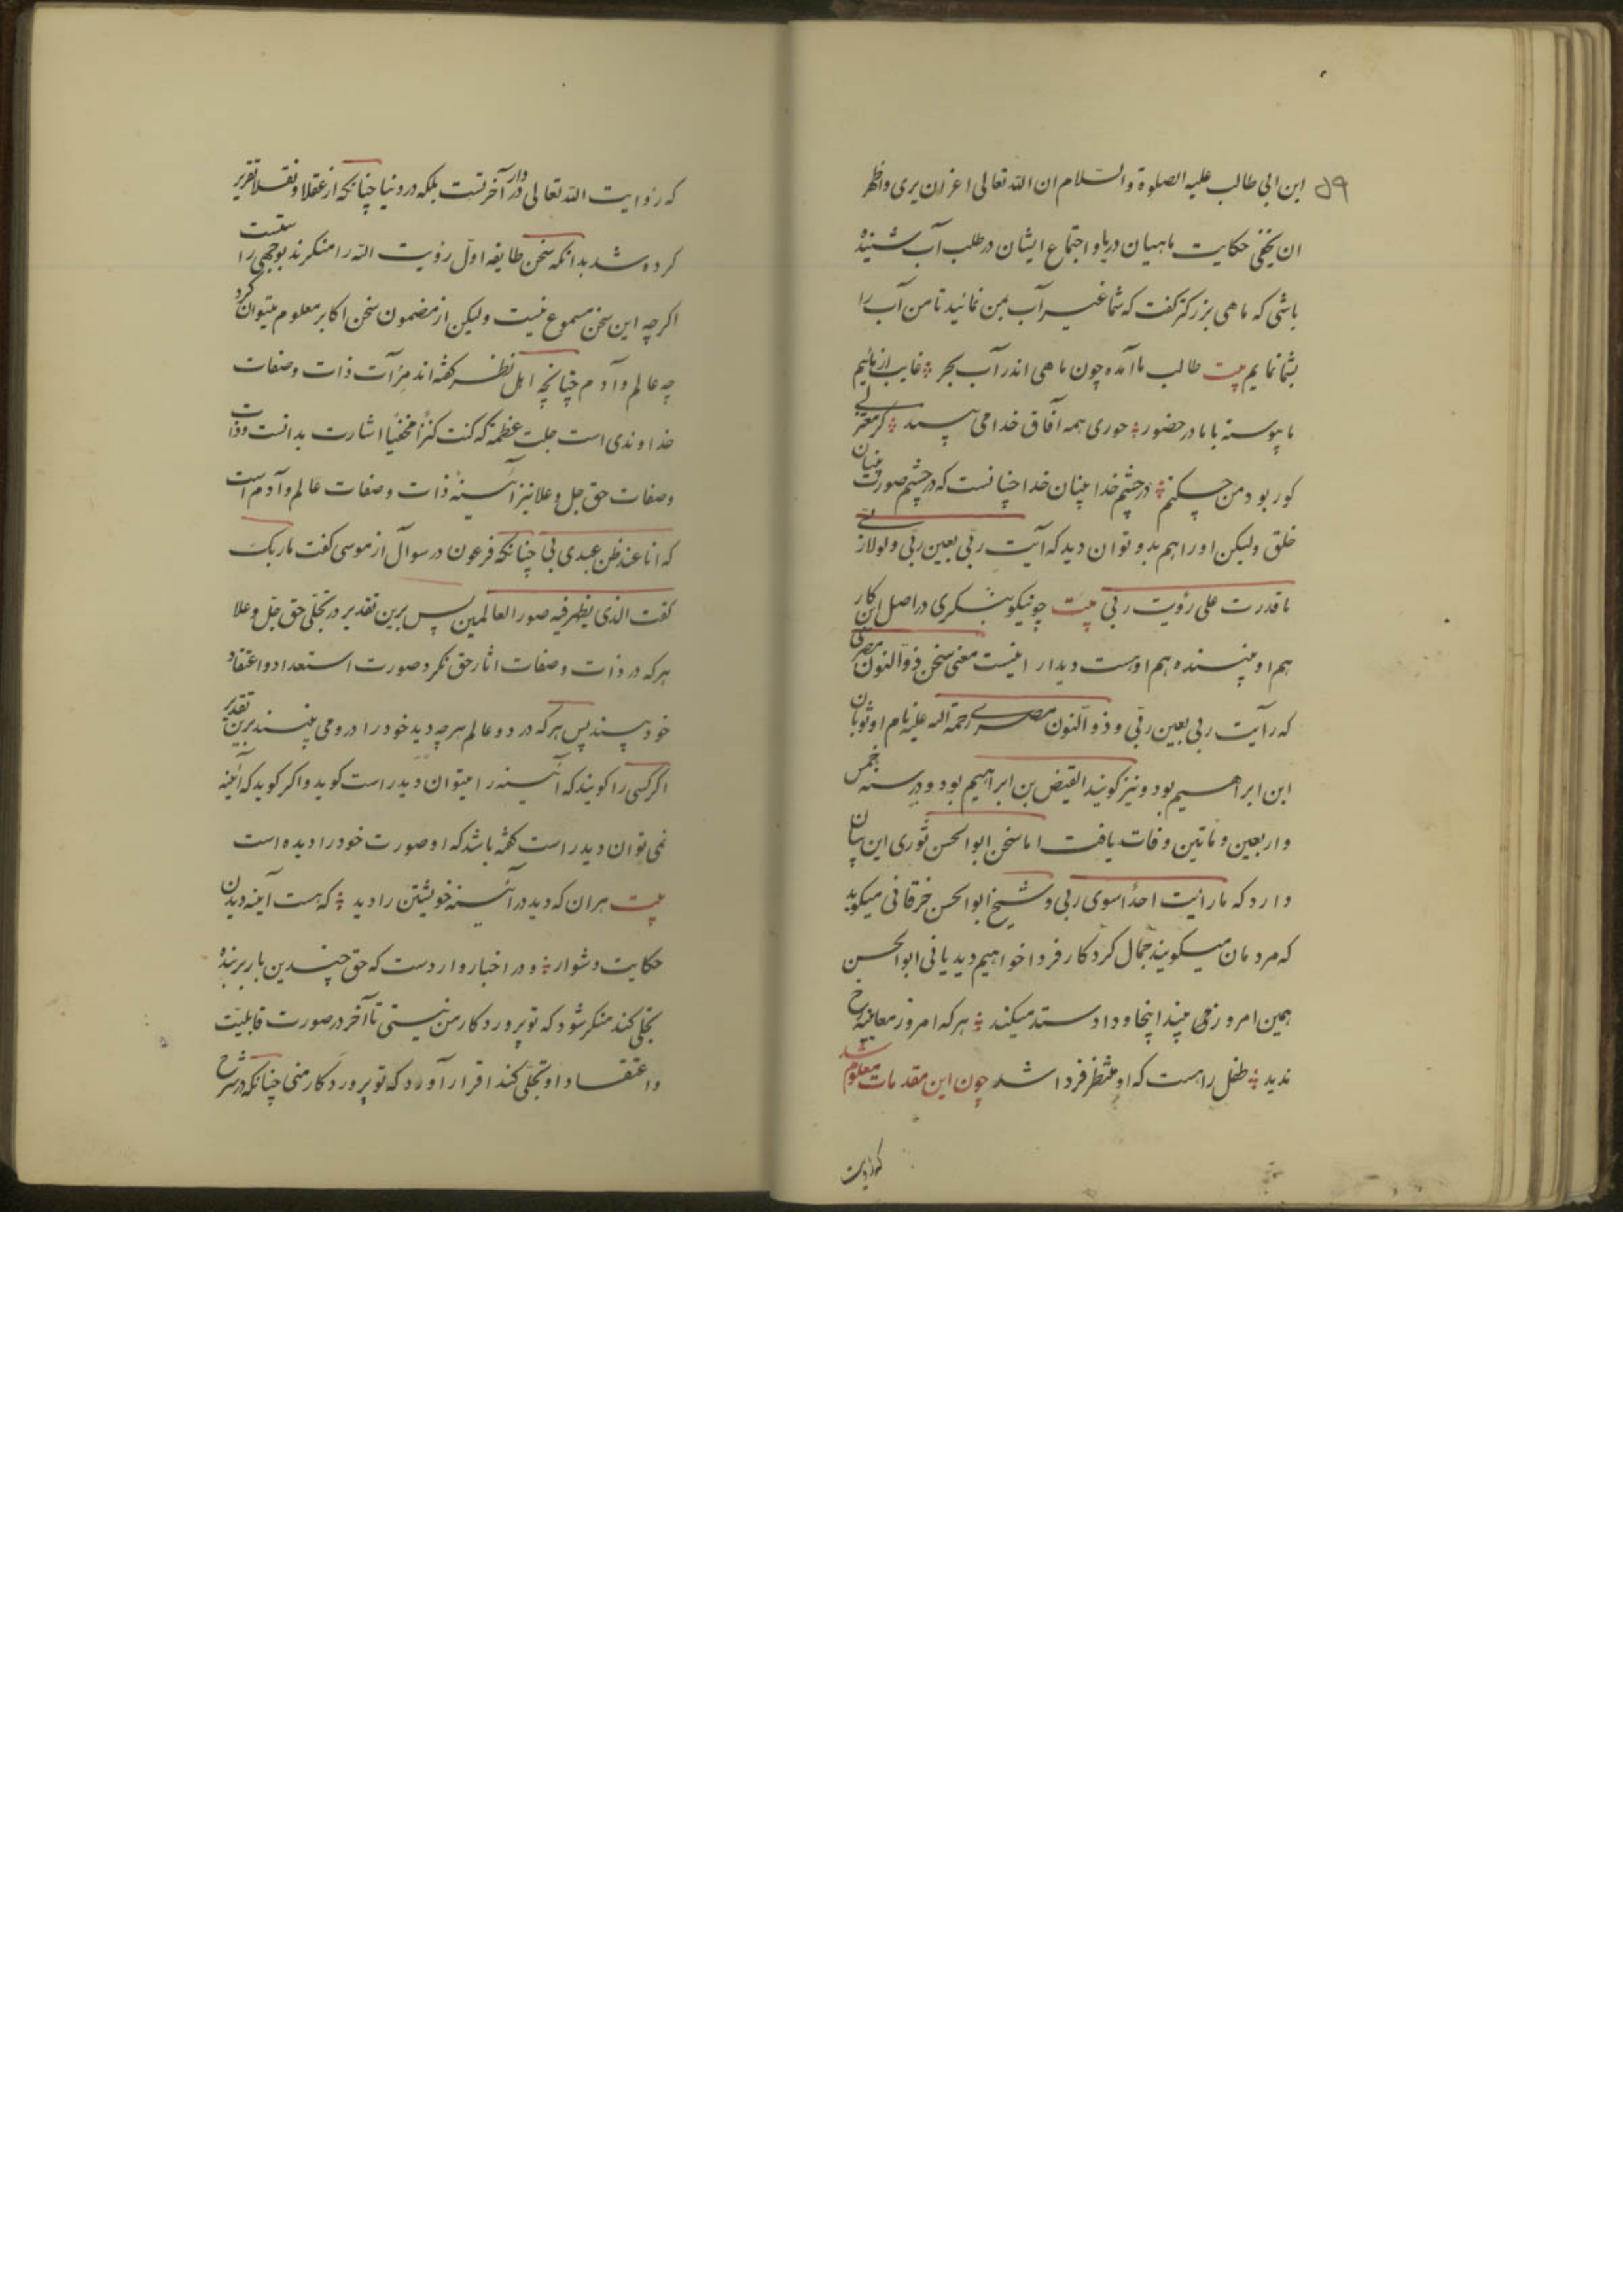 ۵۹
ابن ابی طالب علیه الصلوة والسّلام ان اللّه تعالی اعز ان یری واظهر
ان یخفی حکایت ماهیان دریا و اجتماع ایشان در طلب آب شنیده
باشی که ماهی بزرکتر کفت که شما غیر آب بمن نمائید تا من آب را
بشما نمایم بیت طالب ما آمده چون ماهی اندر آب بحر غایب از مائیم
ما پیوسته با ما در حضور حوری همه آفاق خدا می بیند کر معتزلی
کور بود من چکنم در چشم خدا بینان خدا چنانست که در چشم صورت بینان
خلق ولیکن او را هم بدو توان دید که رأیت ربّی بعین ربّی و لولا ربّی
ما قدرت علی رؤیت ربی بیت چو نیکو بنکری در اصل این کار
هم او بیننده هم اوست دیدار اینست معنی سخن ذو النون مصری
که رأیت ربی بعین ربّی و ذو النون مصری رحمة اللّه علیه نام او ثوبان
ابن ابراهیم بود و نیز کویند الفیض بن ابراهیم بود و در سنه خمس
و اربعین و مأتین وفات یافت اما سخن ابو الحسن نوری این بیان
دارد که ما رأیت احداً سوی ربی و شیخ ابو الحسن خرقانی میکوید
که مردمان میکویند جمال کردکار فردا خواهیم دید یا نی ابو الحسن
همین امروز می بیند اینجا و داد ستد میکند هر که امروز معاینه رخ
ندید طفل راهست که او منتظر فردا شد چون این مقدمات معلوم شد
که رؤیت
که رؤایت اللّه تعالی در دار آخرتست بلکه در دنیا چنانکه از عقلا و نقلا تقریر
کرده شد بدانکه سخن طایفه اوّل رؤیت اللّه را منکرند بوجهی راستست
اکر چه این سخن مسموع نیست ولیکن از مضمون سخن اکابر معلوم میتوان کرد
چه عالم و آدم چنانچه اهل نظر کفته اند مرآت ذات وصفات
خداوندی است جلت عظمته که کنت کنزاً مخفیاً اشارت بدانست و ذات
وصفات حق جل و علا نیز آئینهٔ ذات و صفات عالم و آدم است
که انا عند ظن عبدی بی چنانکه فرعون در سوال از موسی کفت ما ربک
کفت الذی یظهر فیه صور العالمین پس برین تقدیر در تجلّی حق جلّ و علا
هر که در ذات و صفات آثار حق نکرد صورت استعداد و اعتقاد
خود بیند پس هر که در دو عالم هر چه دید خود را در و می بیند برین تقدیر
اکر کسی را کویند که آئینه را میتوان دید راست کوید و اکر کوید که آئینه
نمی توان دید راست کفته باشد که او صورت خود را دیده است
بیت هران که دید در آئینه خویشتن را دید که هست آینه دیدن
حکایت دشوار و در اخبار وارد است که حق چندین بار بر بنده
تجلّی کند منکر شود که تو پروردکار من نیستی تا آخر در صورت قابلیّت
و اعتقاد او تجلّی کند اقرار آورد که تو پروردکار منی چنانکه در شرح